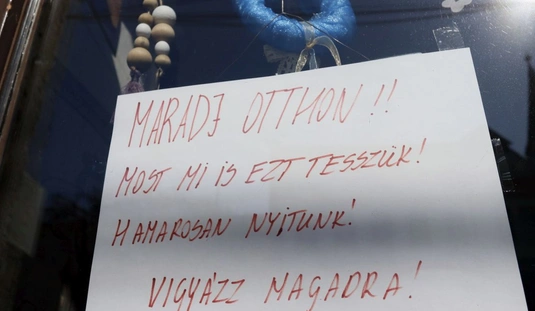 MARADJ OTTHON!!
MOST MI IS EZT TESSZÜK!
HAMAROSAN NYITUNK!
VIGYÁZZ MAGADRA!